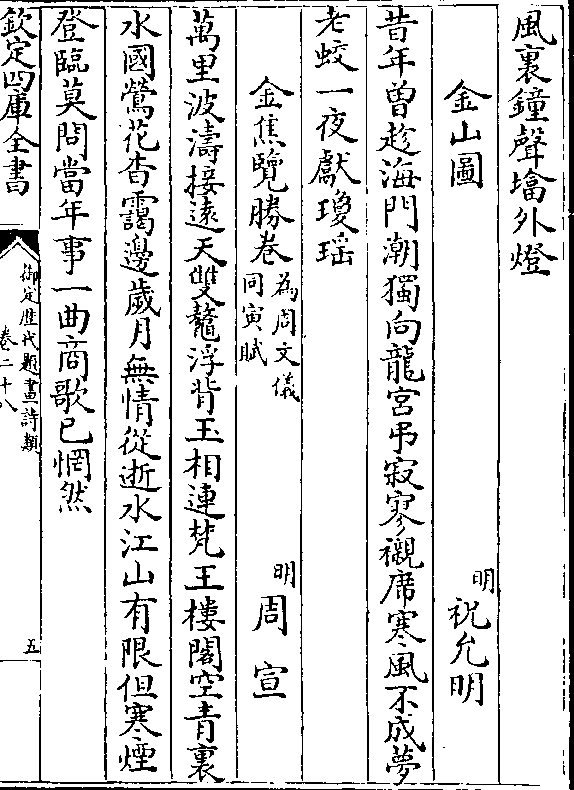 風裏鐘聲墖外燈
金山圖 明 祝允明
昔年曽趁海門潮獨向龍宮弔寂寥襯席寒風不成夢
老蛟一夜獻瓊瑶
金焦覽勝卷 為周文儀同寅賦 明 周宣
萬里波濤接遠天雙鼇浮背玉相連梵王樓閣空青裏
水國鶯花杳靄邊歲月無情從逝水江山有限但寒煙
登臨莫問當年事一曲商歌已惘然
欽定四庫全書
御定歴代題畫詩類
卷二十八
五